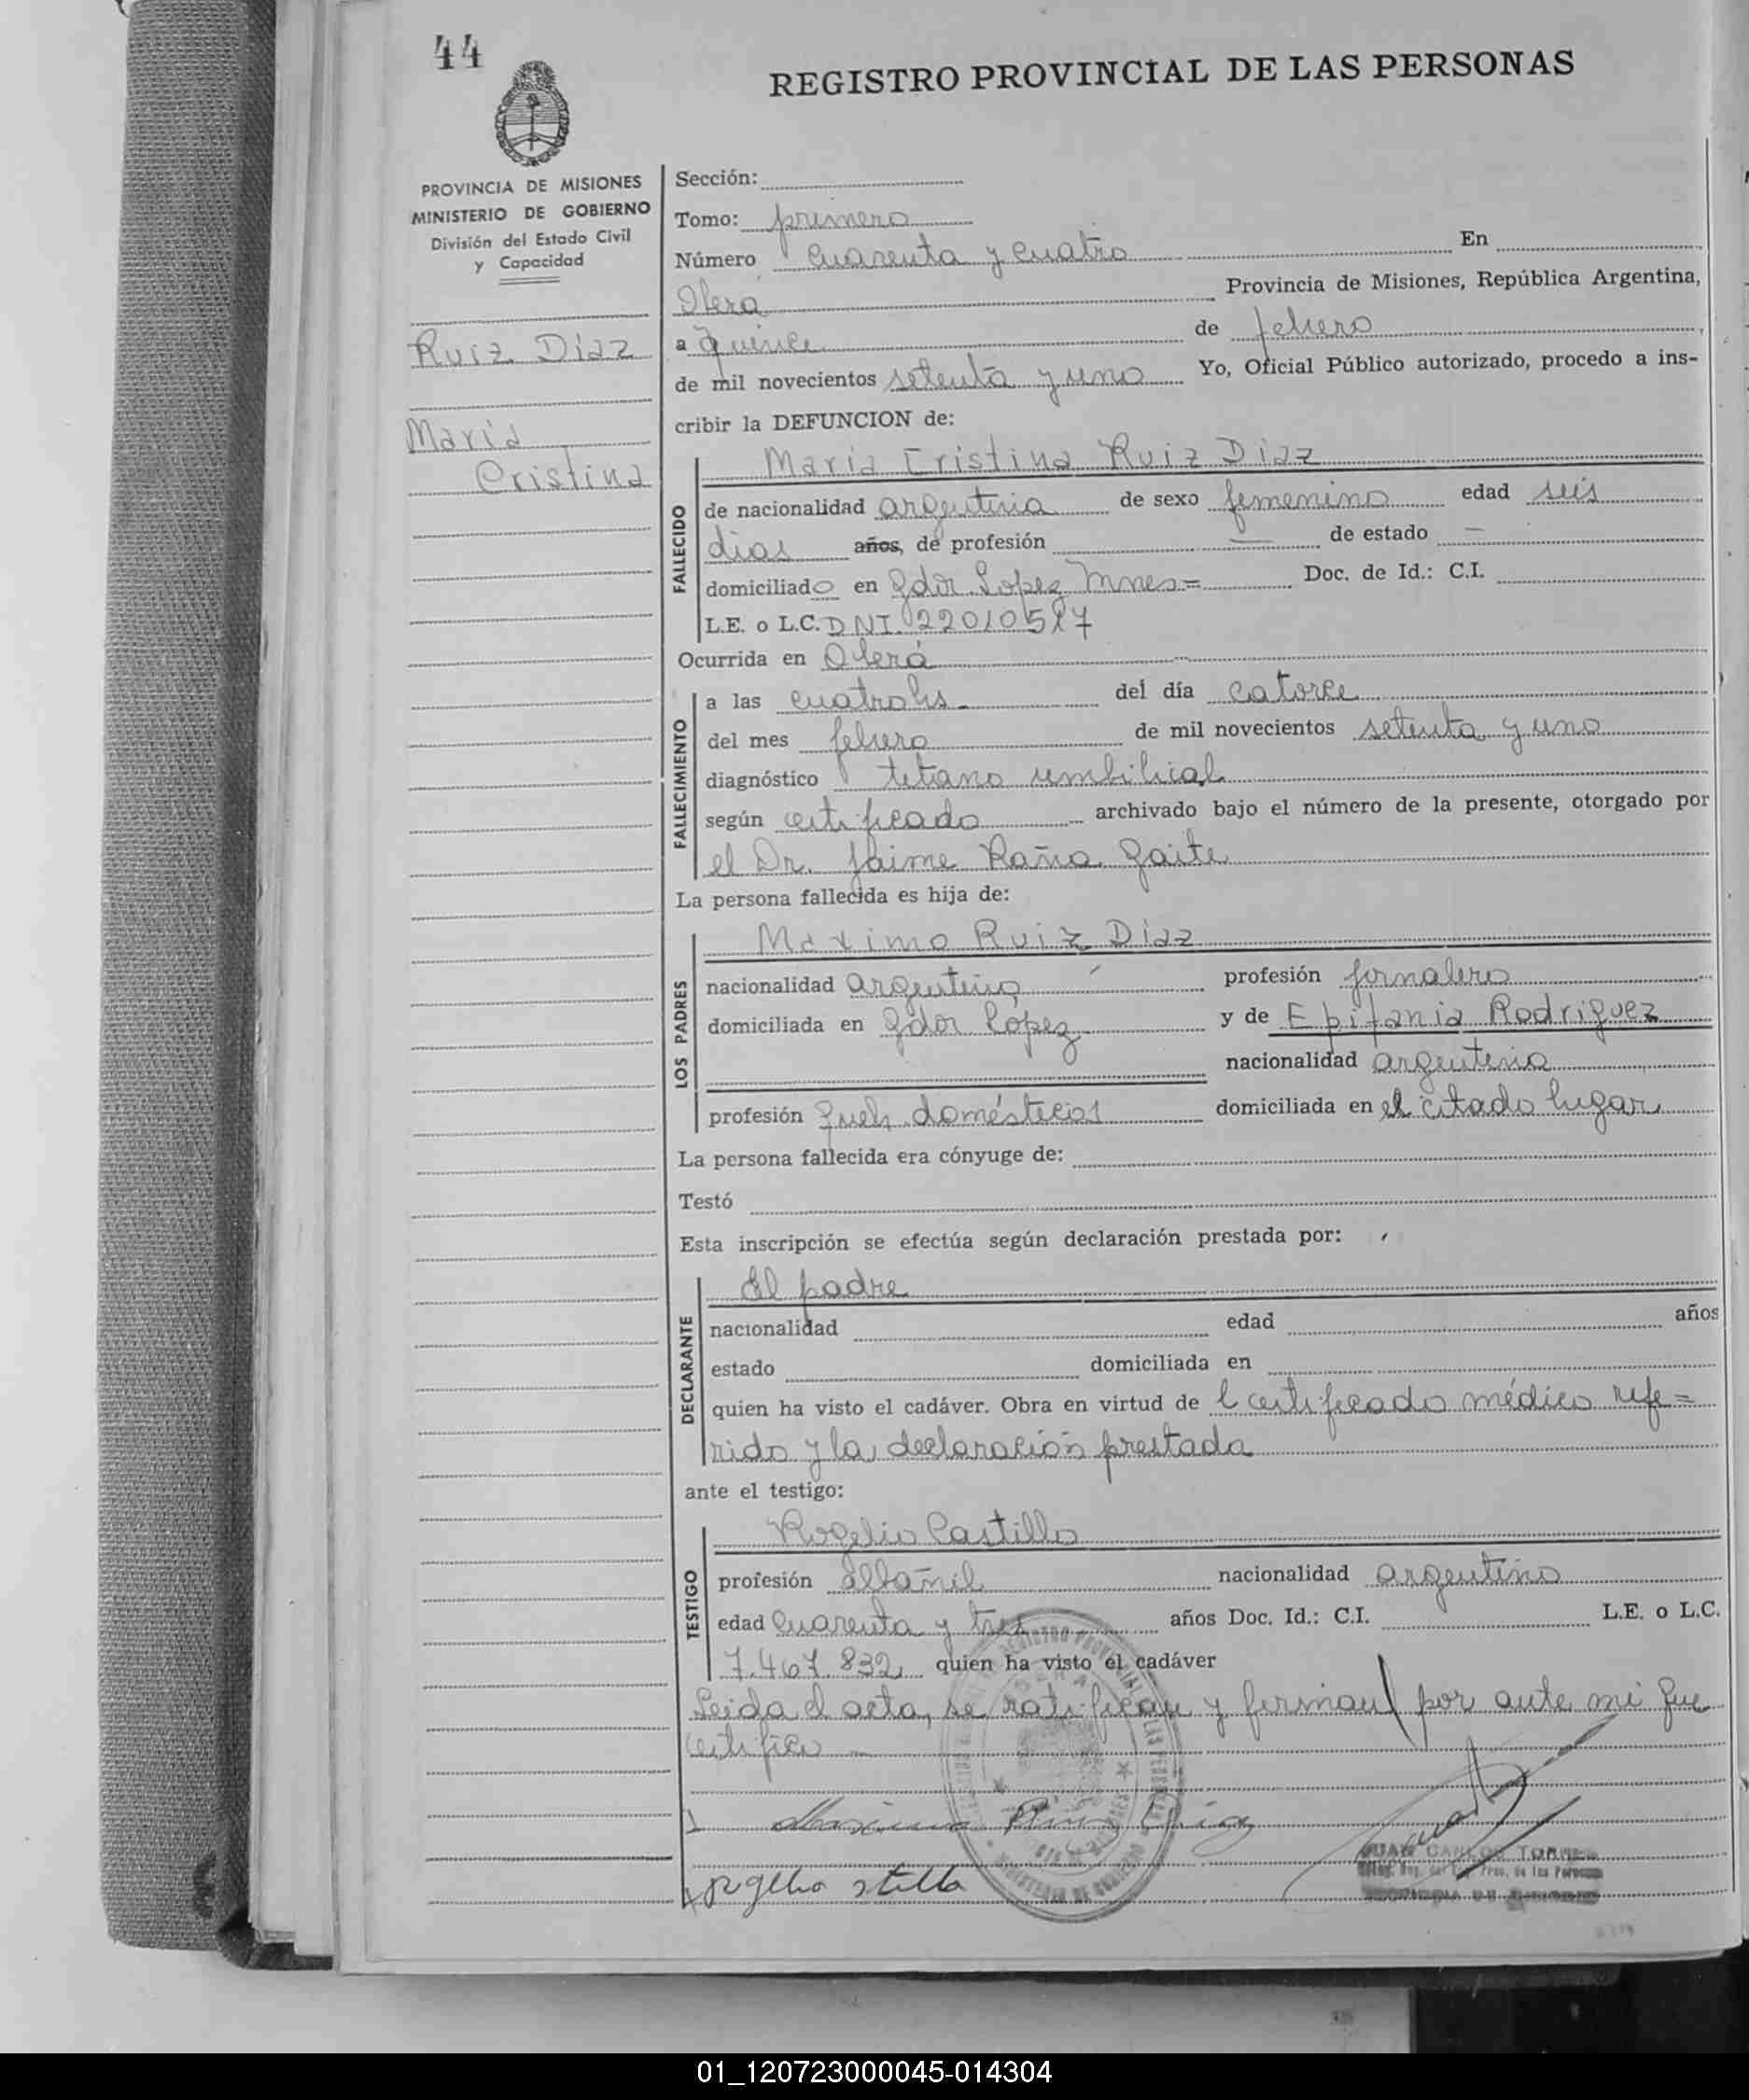 44
REGISTRO PROVINCIAL DE LAS PERSONAS
PROVINCIA DE MISIONES
MINISTERIO DE GOBIERNO
División del Estado Civil
y Capacidad
Ruiz Diaz
María
Cristina
Sección:
Tomo: primero
Número cuarenta y cuatro En
Oberá Provincia de Misiones, República Argentina,
a quince de febrero
de mil novecientos setenta y uno Yo, Oficial Público autorizado, procedo a ins-
cribir la DEFUNCION de:
María Cristina Ruiz Diaz
FALLECIDO
de nacionalidad argentina de sexo femenino edad seis
dias años, de profesión — de estado —
domiciliado en Gdor Lopez Mnes= Doc. de Id.: C.I.
L.E. o L.C. DNI. 22010517
Ocurrida en Oberá
FALLECIMIENTO
a las cuatro hs. del día catorce
del mes febrero de mil novecientos setenta y uno
diagnóstico tetano umbilical
según certificado archivado bajo el número de la presente, otorgado por
el Dr. Jaime Raña Gaite
La persona fallecida es hija de:
LOS PADRES
Maximo Ruiz Diaz
nacionalidad argentina profesión jornalero
domiciliada en Gdor Lopez y de Epifania Rodriguez
nacionalidad argentina
profesión queh. domésticos domiciliada en el citado lugar
La persona fallecida era cónyuge de:
Testó
Esta inscripción se efectúa según declaración prestada por:
DECLARANTE
El padre
nacionalidad edad años
estado domiciliada en
quien ha visto el cadáver. Obra en virtud de l certificado médico refe=
rido y la declaración prestada
ante el testigo:
TESTIGO
Rogelio Castillo
profesión albañil nacionalidad argentino
edad cuarenta y tres años Doc. Id.: C.I. L.E. o L.C.
7.467.832 quien ha visto el cadáver
Leida el acta, se ratifican y firman por ante mi que
certifico
Maximo Ruiz Diaz
JUAN CARLOS TORRES
01_120723000045-014304